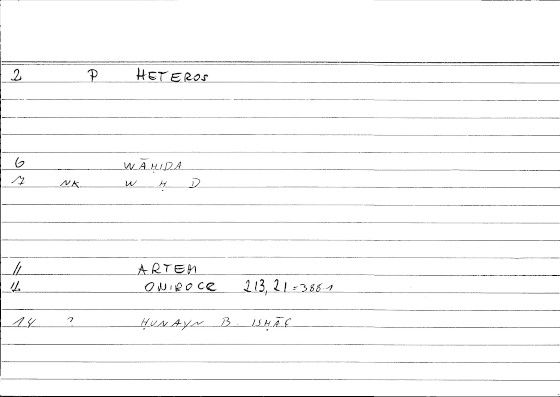 2 P HETEROS
6 WĀḤIDA
7 NK W Ḥ D
11 ARTEM
12 ONIROCR 213,21=388 1
14 ? ḤUNAYN B. ISḤĀC